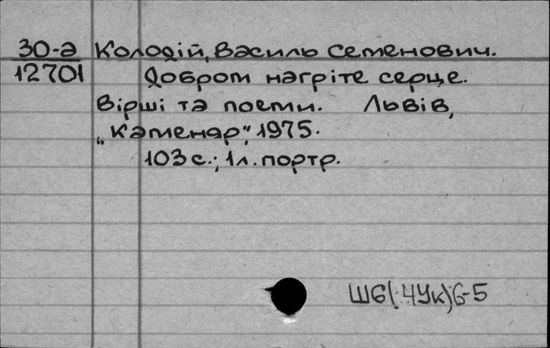 30-а Колодій, Василь Семенович.
12701 Добром нагріте серце.
Вірші та поеми. Львів,
„Каменяр", 1975.
103 с.; 1л. портр.
Ш6(4Ук)6-5